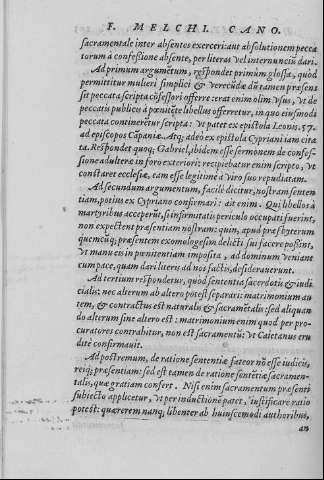 F. MELCHI. CANO.
sacramentale inter absentes exerceri: aut absolutionem peccatorum à confessione absente, per literas vel internuncios dari.
Ad primum argumētum, respōndet primùm glossa, quòd
permittitur mulieri simplici & verecūdæ dū tamen præsens
sit peccata scripta cōfessori offerre: erat enim olim vsus, vt de
peccatis publicis à pœnitēte libellus offerretur, in quo eiusmodi
peccata continerētur scripta: vt patet ex epistola Leonis. 57.
ad episcopos Cāpaniæ. Atq; adeò ex epistola Cypriani iam citata. Respōdet quoq; Gabriel, ibidem esse sermonem de confessione adulteræ in foro exteriori: recipiebatur enim scripto, vt
constaret ecclesiæ, eam esse legitimè à viro suo repudiatam.
Ad secundum argumentum, facilè dicitur, nostram sententiam, potius ex Cypriano confirmari: ait enim. Qui libellos à
martyribus acceperūt, si infirmitatis periculo occupati fuerint,
non expectent præsentiam nostram: quin, apud præsbyterum
quemcūq; præsentem exomologesim delicti sui facere possint,
vt manu eis in pœnitentiam imposita, ad dominum veniant
cum pace, quam dari literis ad nos factis, desiderauerunt.
Ad tertium respōndetur, quòd sententia sacerdotis & iudicialis: nec alterum ab altero potest separari: matrimonium autem, & contractus est naturalis & sacramētalis sed aliquando alterum sine altero est: matrimonium enim quod per procuratores contrahitur, non est sacramentū: vt Caietanus erudite confirmauit.
Ad postremum, de ratione sententiæ fateor nō esse iudicis,
reiq; præsentiam: sed est tamen de ratione sentētiæ sacramentalis, quæ gratiam confert. Nisi enim sacramentum præsenti
subiecto applicetur, vt per inductionē patet, iustificare ratio
potest: quærerem nanq, libenter ab huiuscemodi authoribus,
an